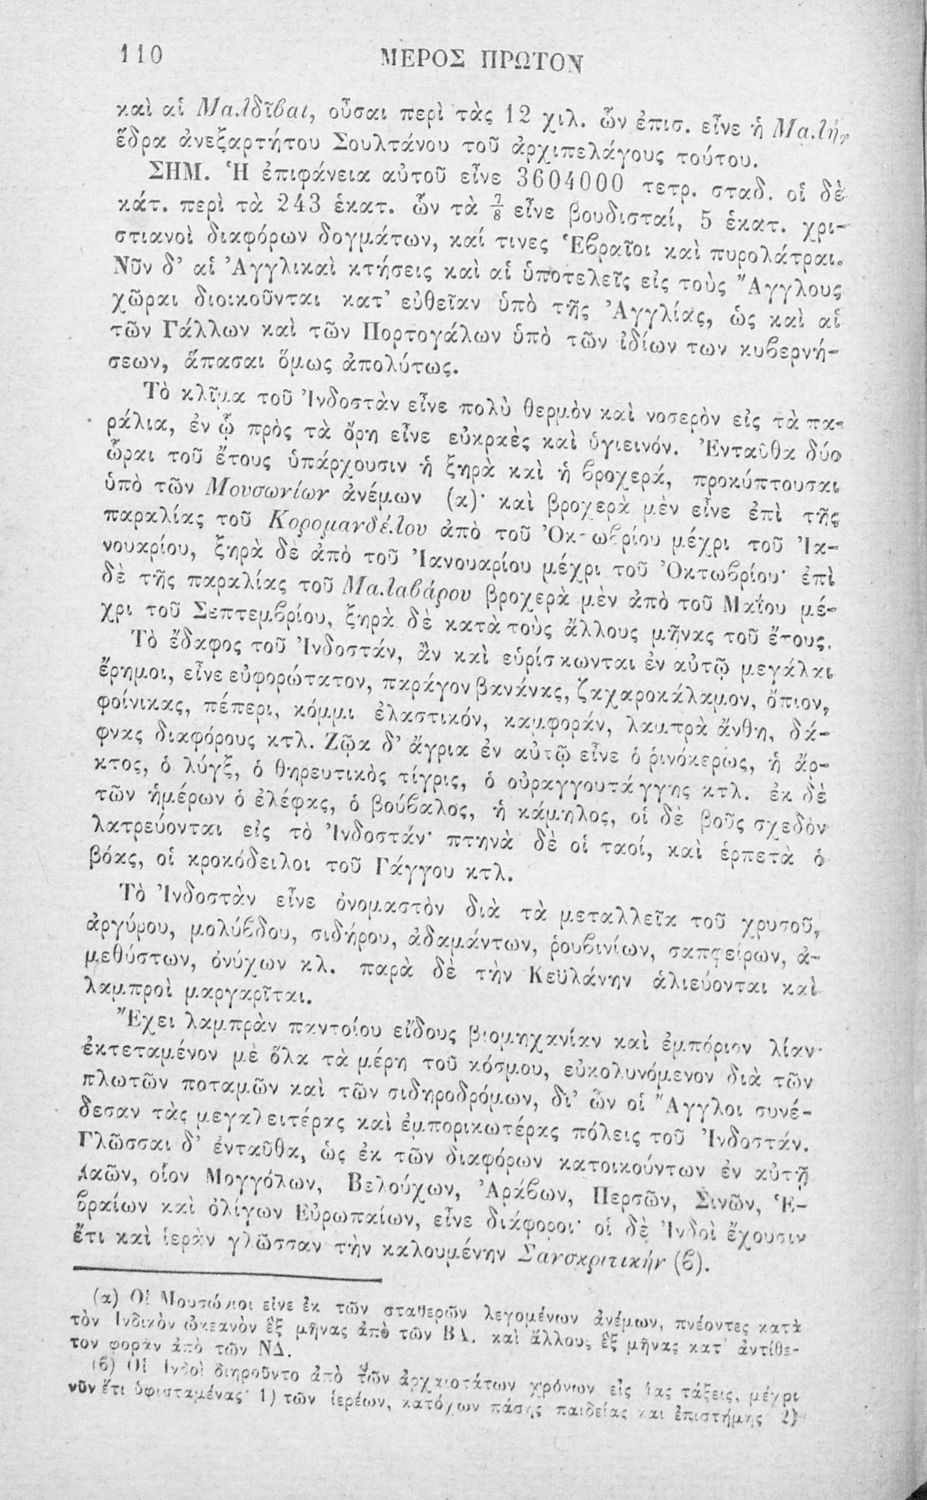 110
ΜΕΡΟΣ ΠΡΩΤΟΝ
καὶ αἱ Μαλδῖβαι, οὖσαι περὶ τὰς 12 χιλ. ὧν ἐπισ. εἶνε ἡ Μαλὴ,
ἕδρα ἀνεξαρτήτου Σουλτάνου τοῦ ἀρχιπελάγους τούτου.
ΣΗΜ. Ἡ ἐπιφάνεια αὐτοῦ εἶνε 3604000 τετρ. σταδ. οἱ δὲ
κάτ. περὶ τὰ 243 ἑκατ. ὧν τὰ ⅞ εἶνε βουδισταί, 5 ἑκατ. χρι-
στιανοὶ διαφόρων δογμάτων, καί τινες Ἑβραῖοι καὶ πυρολάτραι.
Νῦν δ' αἱ Ἀγγλικαὶ κτήσεις καὶ αἱ ὑποτελεῖς εἰς τοὺς Ἄγγλους
χῶραι διοικοῦνται κατ' εὐθεῖαν ὑπὸ τῆς Ἀγγλίας, ὡς καὶ αἱ
τῶν Γάλλων καὶ τῶν Πορτογάλων ὑπὸ τῶν ἰδίων των κυβερνή-
σεων, ἅπασαι ὅμως ἀπολύτως.
Τὸ κλῖμα τοῦ Ἰνδοστὰν εἶνε πολὺ θερμὸν καὶ νοσερὸν εἰς τὰ πα-
ράλια, ἐν ᾧ πρὸς τὰ ὄρη εἶνε εὐκραὲς καὶ ὑγιεινόν. Ἐνταῦθα δύο
ὧραι τοῦ ἔτους ὑπάρχουσιν ἡ ξηρὰ καὶ ἡ βροχερά, προκύπτουσαι
ὑπὸ τῶν Μουσωνίων ἀνέμων (α)· καὶ βροχερὰ μὲν εἶνε ἐπὶ τῆς
παραλίας τοῦ Κορομανδέλου ἀπὸ τοῦ Ὀκτωβρίου μέχρι τοῦ Ἰα-
νουαρίου, ξηρὰ δὲ ἀπὸ τοῦ Ἰανουαρίου μέχρι τοῦ Ὀκτωβρίου· ἐπὶ
δὲ τῆς παραλίας τοῦ Μαλαβάρου βροχερὰ μὲν ἀπὸ τοῦ Μαΐου μέ-
χρι τοῦ Σεπτεμβρίου, ξηρὰ δὲ κατὰ τοὺς ἄλλους μῆνας τοῦ ἔτους.
Τὸ ἔδαφος τοῦ Ἰνδοστάν, ἂν καὶ εὑρίσκωνται ἐν αὐτῷ μεγάλαι
ἔρημοι, εἶνε εὐφορώτατον, παράγον βανάνας, ζαχαροκάλαμον, ὄπιον,
φοίνικας, πέπερι, κόμμι ἐλαστικόν, καμφοράν, λαμπρὰ ἄνθη, δά-
φνας διαφόρους κτλ. Ζῷα δ' ἄγρια ἐν αὐτῷ εἶνε ὁ ῥινόκερως, ἡ ἄρ-
κτος, ὁ λύγξ, ὁ θηρευτικὸς τίγρις, ὁ οὐραγγουτάγγης κτλ. ἐκ δὲ
τῶν ἡμέρων ὁ ἐλέφας, ὁ βούβαλος, ἡ κάμηλος, οἱ δὲ βοῦς σχεδὸν
λατρεύονται εἰς τὸ Ἰνδοστάν· πτηνὰ δὲ οἱ ταοί, καὶ ἑρπετὰ ὁ
βόας, οἱ κροκόδειλοι τοῦ Γάγγου κτλ.
Τὸ Ἰνδοστὰν εἶνε ὀνομαστὸν διὰ τὰ μεταλλεῖα τοῦ χρυσοῦ,
ἀργύρου, μολύβδου, σιδήρου, ἀδαμάντων, ῥουβινίων, σαπφείρων, ἀ-
μεθύστων, ὀνύχων κλ. παρὰ δὲ τὴν Κεϋλάνην ἁλιεύονται καὶ
λαμπροὶ μαργαρῖται.
Ἔχει λαμπρὰν παντοίου εἴδους βιομηχανίαν καὶ ἐμπόριον λίαν
ἐκτεταμένον μὲ ὅλα τὰ μέρη τοῦ κόσμου, εὐκολυνόμενον διὰ τῶν
πλωτῶν ποταμῶν καὶ τῶν σιδηροδρόμων, δι' ὧν οἱ Ἄγγλοι συνέ-
δεσαν τὰς μεγαλειτέρας καὶ ἐμπορικωτέρας πόλεις τοῦ Ἰνδοστάν.
Γλῶσσαι δ' ἐνταῦθα, ὡς ἐκ τῶν διαφόρων κατοικούντων ἐν αὐτῇ
λαῶν, οἷον Μογγόλων, Βελούχων, Ἀράβων, Περσῶν, Σινῶν, Ἑ-
βραίων καὶ ὀλίγων Εὐρωπαίων, εἶνε διάφοροι· οἱ δὲ Ἰνδοὶ ἔχουσιν
ἔτι καὶ ἱερὰν γλῶσσαν τὴν καλουμένην Σανσκριτικήν (β).
(α) Οἱ Μουσώνιοι εἶνε ἐκ τῶν σταθερῶν λεγομένων ἀνέμων, πνέοντες κατὰ
τὸν Ἰνδικὸν ὠκεανὸν ἓξ μῆνας ἀπὸ τῶν ΒΑ. καὶ ἄλλους ἓξ μῆνας κατ' ἀντίθε-
τον φορὰν ἀπὸ τῶν ΝΔ.
(β) Οἱ Ἰνδοὶ διῃροῦντο ἀπὸ τῶν ἀρχαιοτάτων χρόνων εἰς τάξεις, μέχρι
νῦν ἔτι ὑφισταμένας· 1) τῶν ἱερέων, κατόχων πάσης παιδείας καὶ ἐπιστήμης 2)